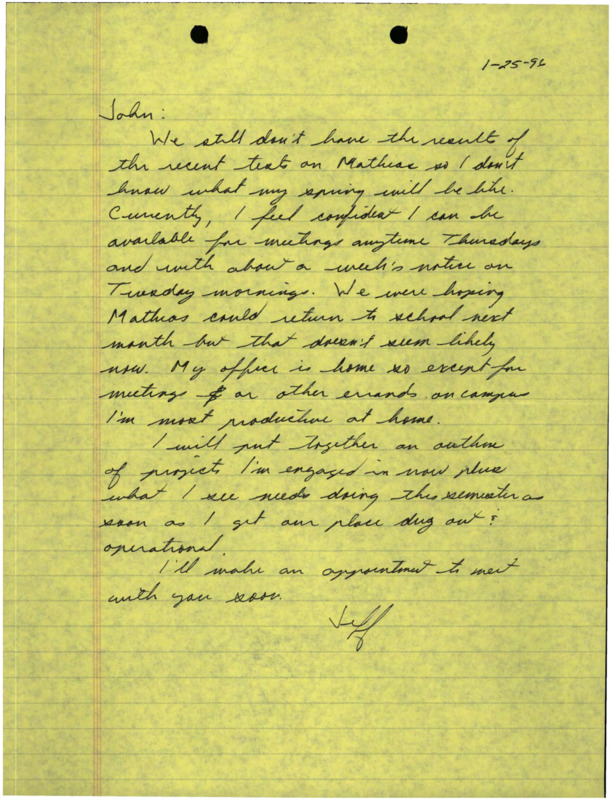 1-25-96
John:
We still don't have the results of
the recent tests on Mathias so I don't
know what my spring will be like.
Currently, I feel confident I can be
available for meetings anytime Thursdays
and with about a week's notice on
Tuesday mornings. We were hoping
Mathias could return to school next
month but that doesn't seem likely
now. My office is home so except for
meetings or other errands on campus
I'm most productive at home.
I will put together an outline
of projects I'm engaged in now plus
what I see needs doing this semester as
soon as I get our place dug out &
operational.
I'll make an appointment to meet
with you soon.
Jeff